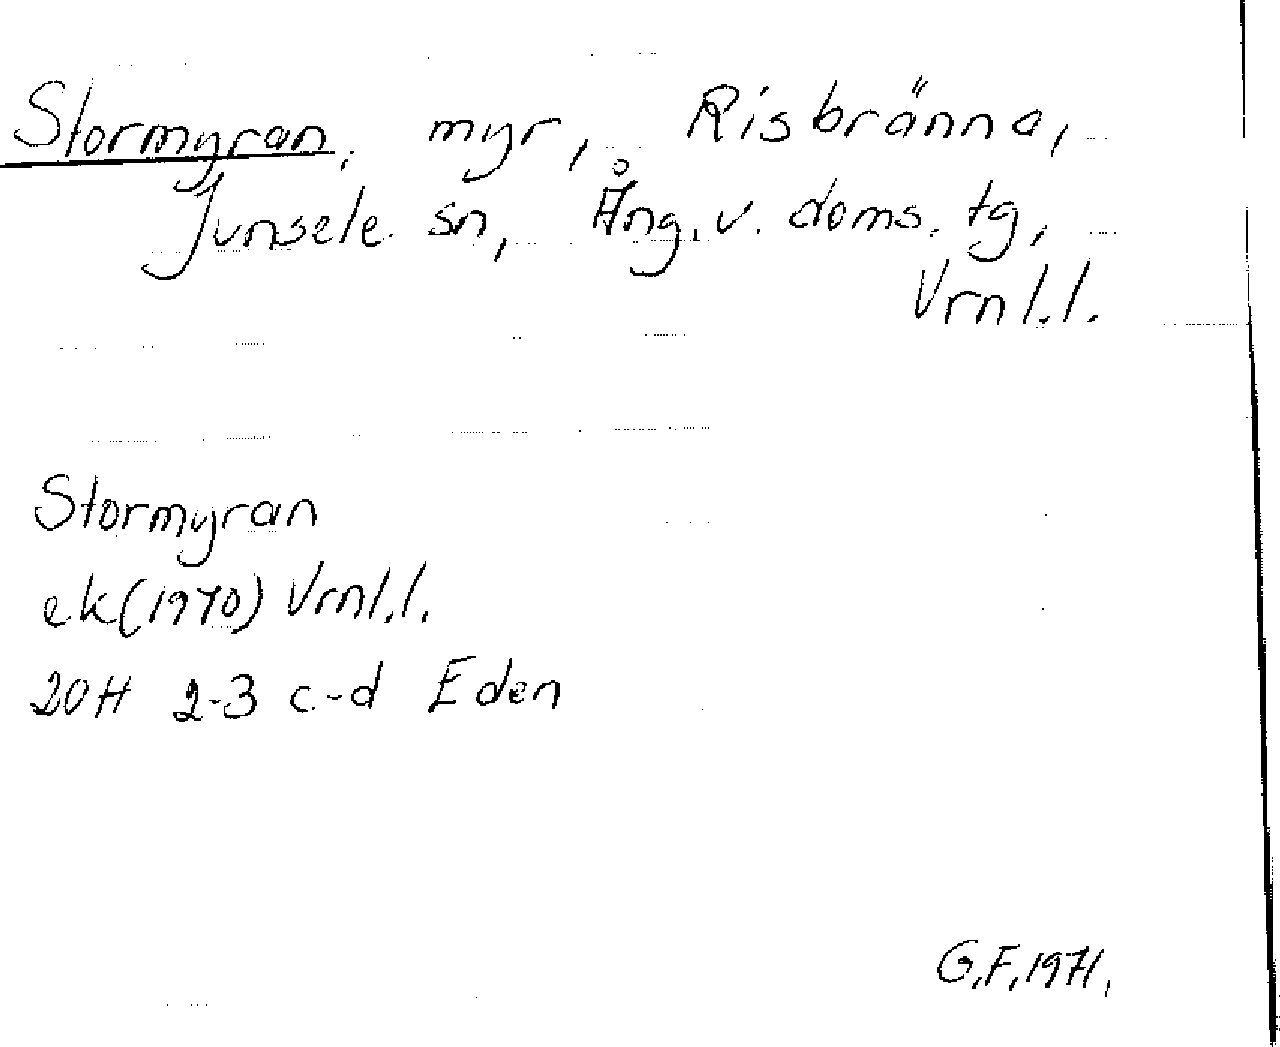 Stormyran, myr, Risbränna,
Junsele sn, Ång. v. doms. tg,
Vrnl.l.
Stormyran
ek (1970) Vrnl.l.
20H 2-3 c-d Eden
G.F. 1971.